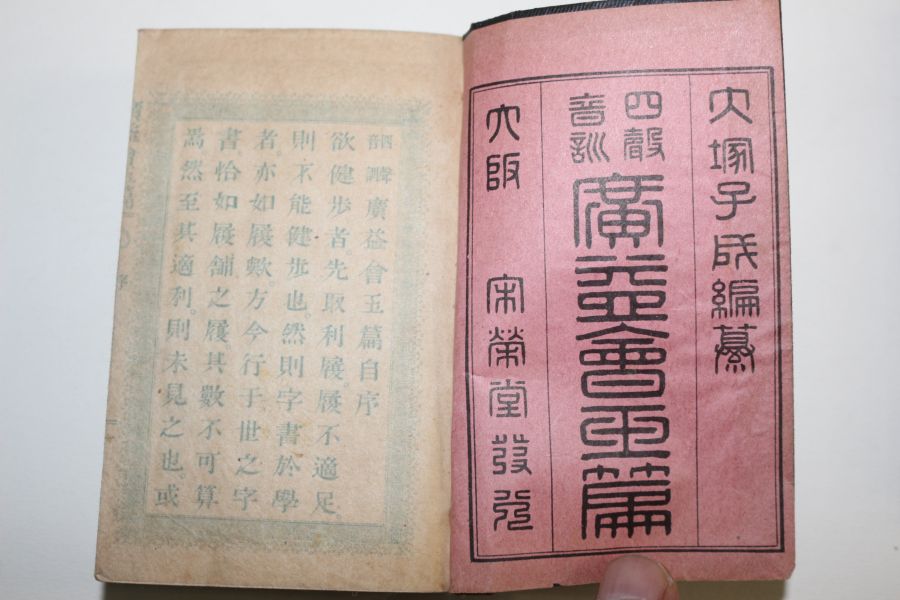 大塚子成編纂
四聲
音訓
廣益會玉篇
大阪 宋榮堂發兌
四聲
音訓廣益會玉篇自序
欲健步者。先取利履。履不適足。
則不能健步也。然則字書於學
者。亦如履歟。方今行于世之字
書。恰如履舖之履其數不可算
焉。然至其適利。則未見之也。或